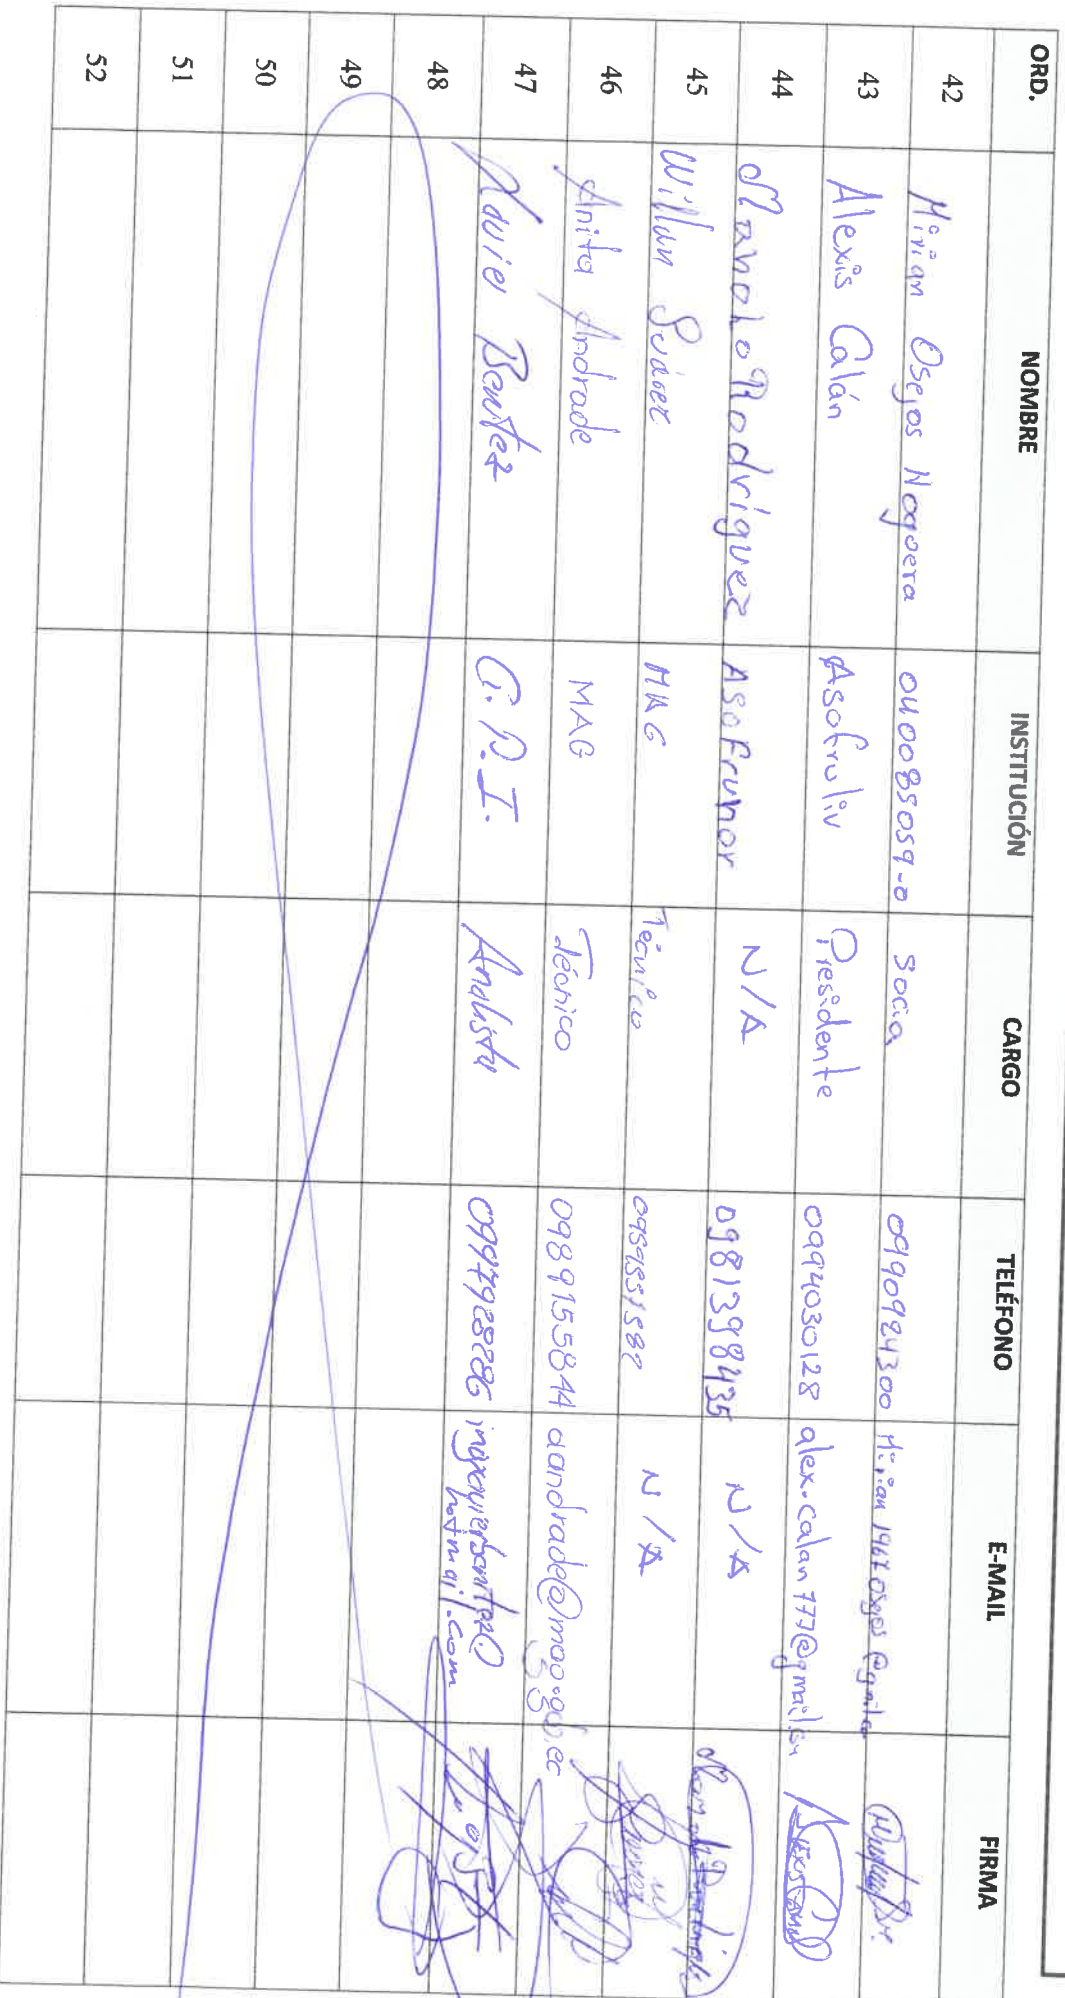 ORD. NOMBRE INSTITUCIÓN CARGO TELÉFONO E-MAIL FIRMA
42 Mirian Osejos Nogoera 040085059-0 Socia 0990924300
43 Alexis Calán Asofruliv Presidente 0994030128 alex.calan777@gmail.
44 Manolo Rodríguez Asofrunor N/A 0981398435 N/A
45 Willan Suárez MAG Técnico N/A
46 Anita Andrade MAG Técnico 0989155844 aandrade@mag.gob.ec
47 Xavier Benítez Analista
hotmail.com
48
49
50
51
52